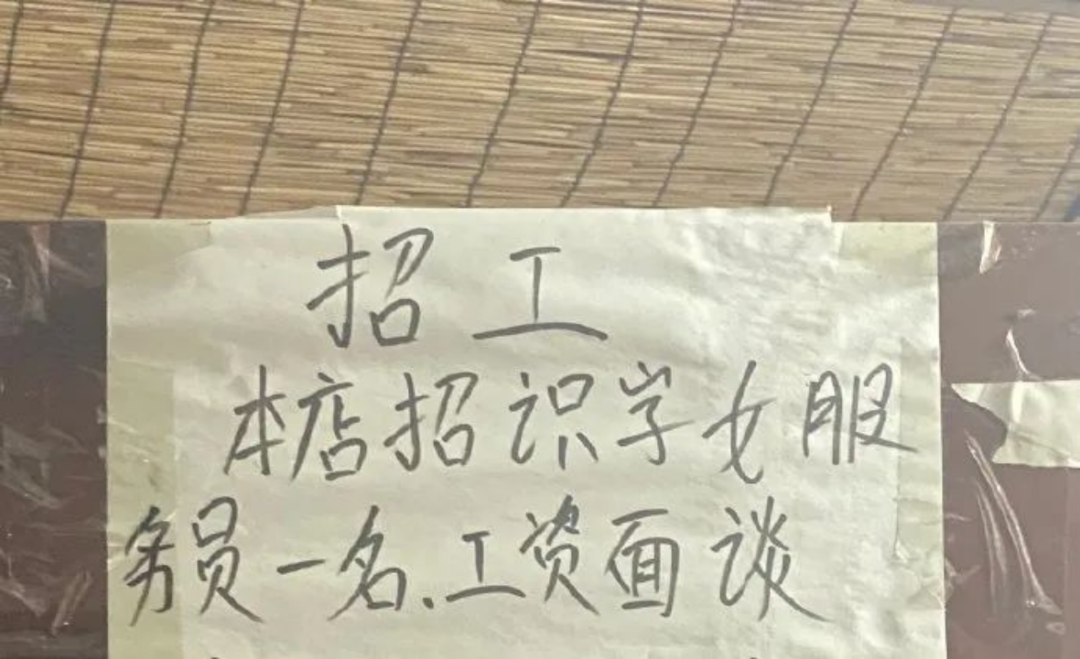 招工
本店招识字女服
务员一名、工资面谈